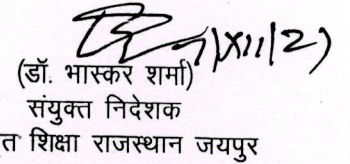 (डॉ. भास्कर शर्मा)
संयुक्त निदेशक
त शिक्षा राजस्थान जयपुर